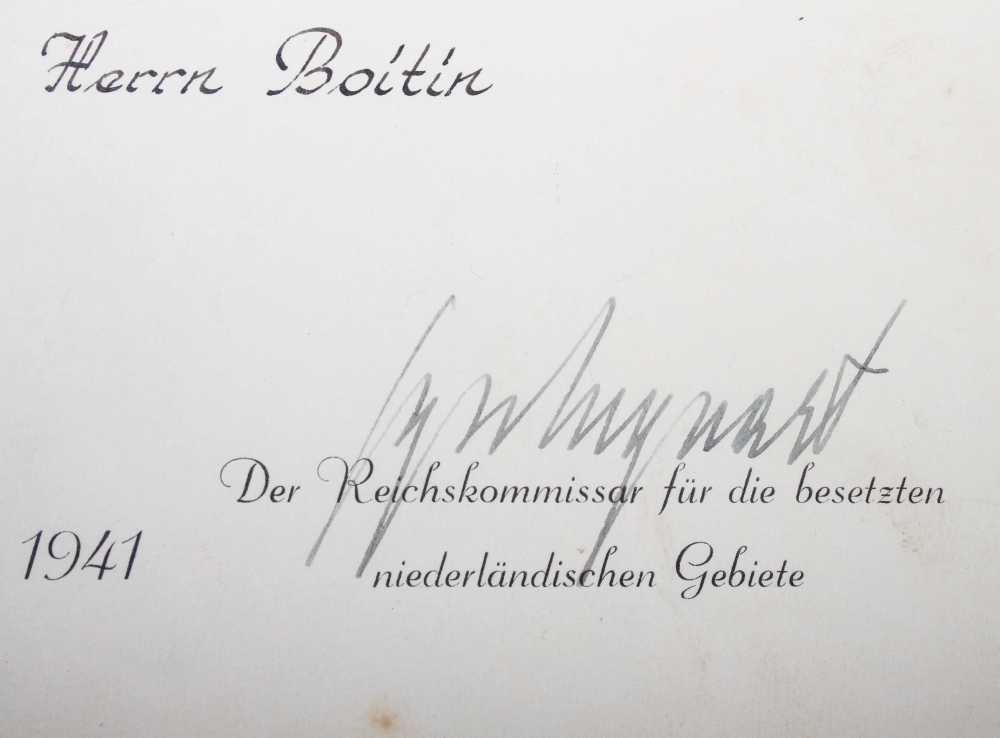 Herrn Boitin
Seyß-Inquart
Der Reichskommissar für die besetzten
niederländischen Gebiete
1941